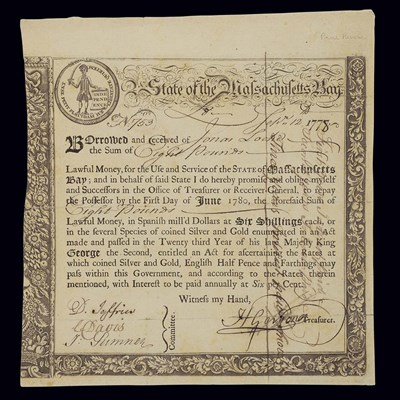 State of the Massachusetts Bay
No 753 Sepr. 12 1778
BOrrowed and received of Jonas Locke
the Sum of Eight Pounds
Lawful Money, for the Use and Service of the STATE of Massachusetts
Bay; and in behalf of said State I do hereby promise and oblige myself
and Successors in the Office of Treasurer or Receiver-General, to repay
the Possessor by the First Day of June 1780, the aforesaid Sum of
Eight Pounds
Lawful Money, in Spanish mill'd Dollars at Six Shillings each, or
in the several Species of coined Silver and Gold enumerated in an Act
made and passed in the Twenty third Year of his late Majesty King
George the Second, entitled an Act for ascertaining the Rates at
which coined Silver and Gold, English Half Pence and Farthings may
pass within this Government, and according to the Rates therein
mentioned, with Interest to be paid annually at Six per Cent.
Witness my Hand,
D. Jeffries
Davis
Sumner
Committee.
H Gardner Treasurer.